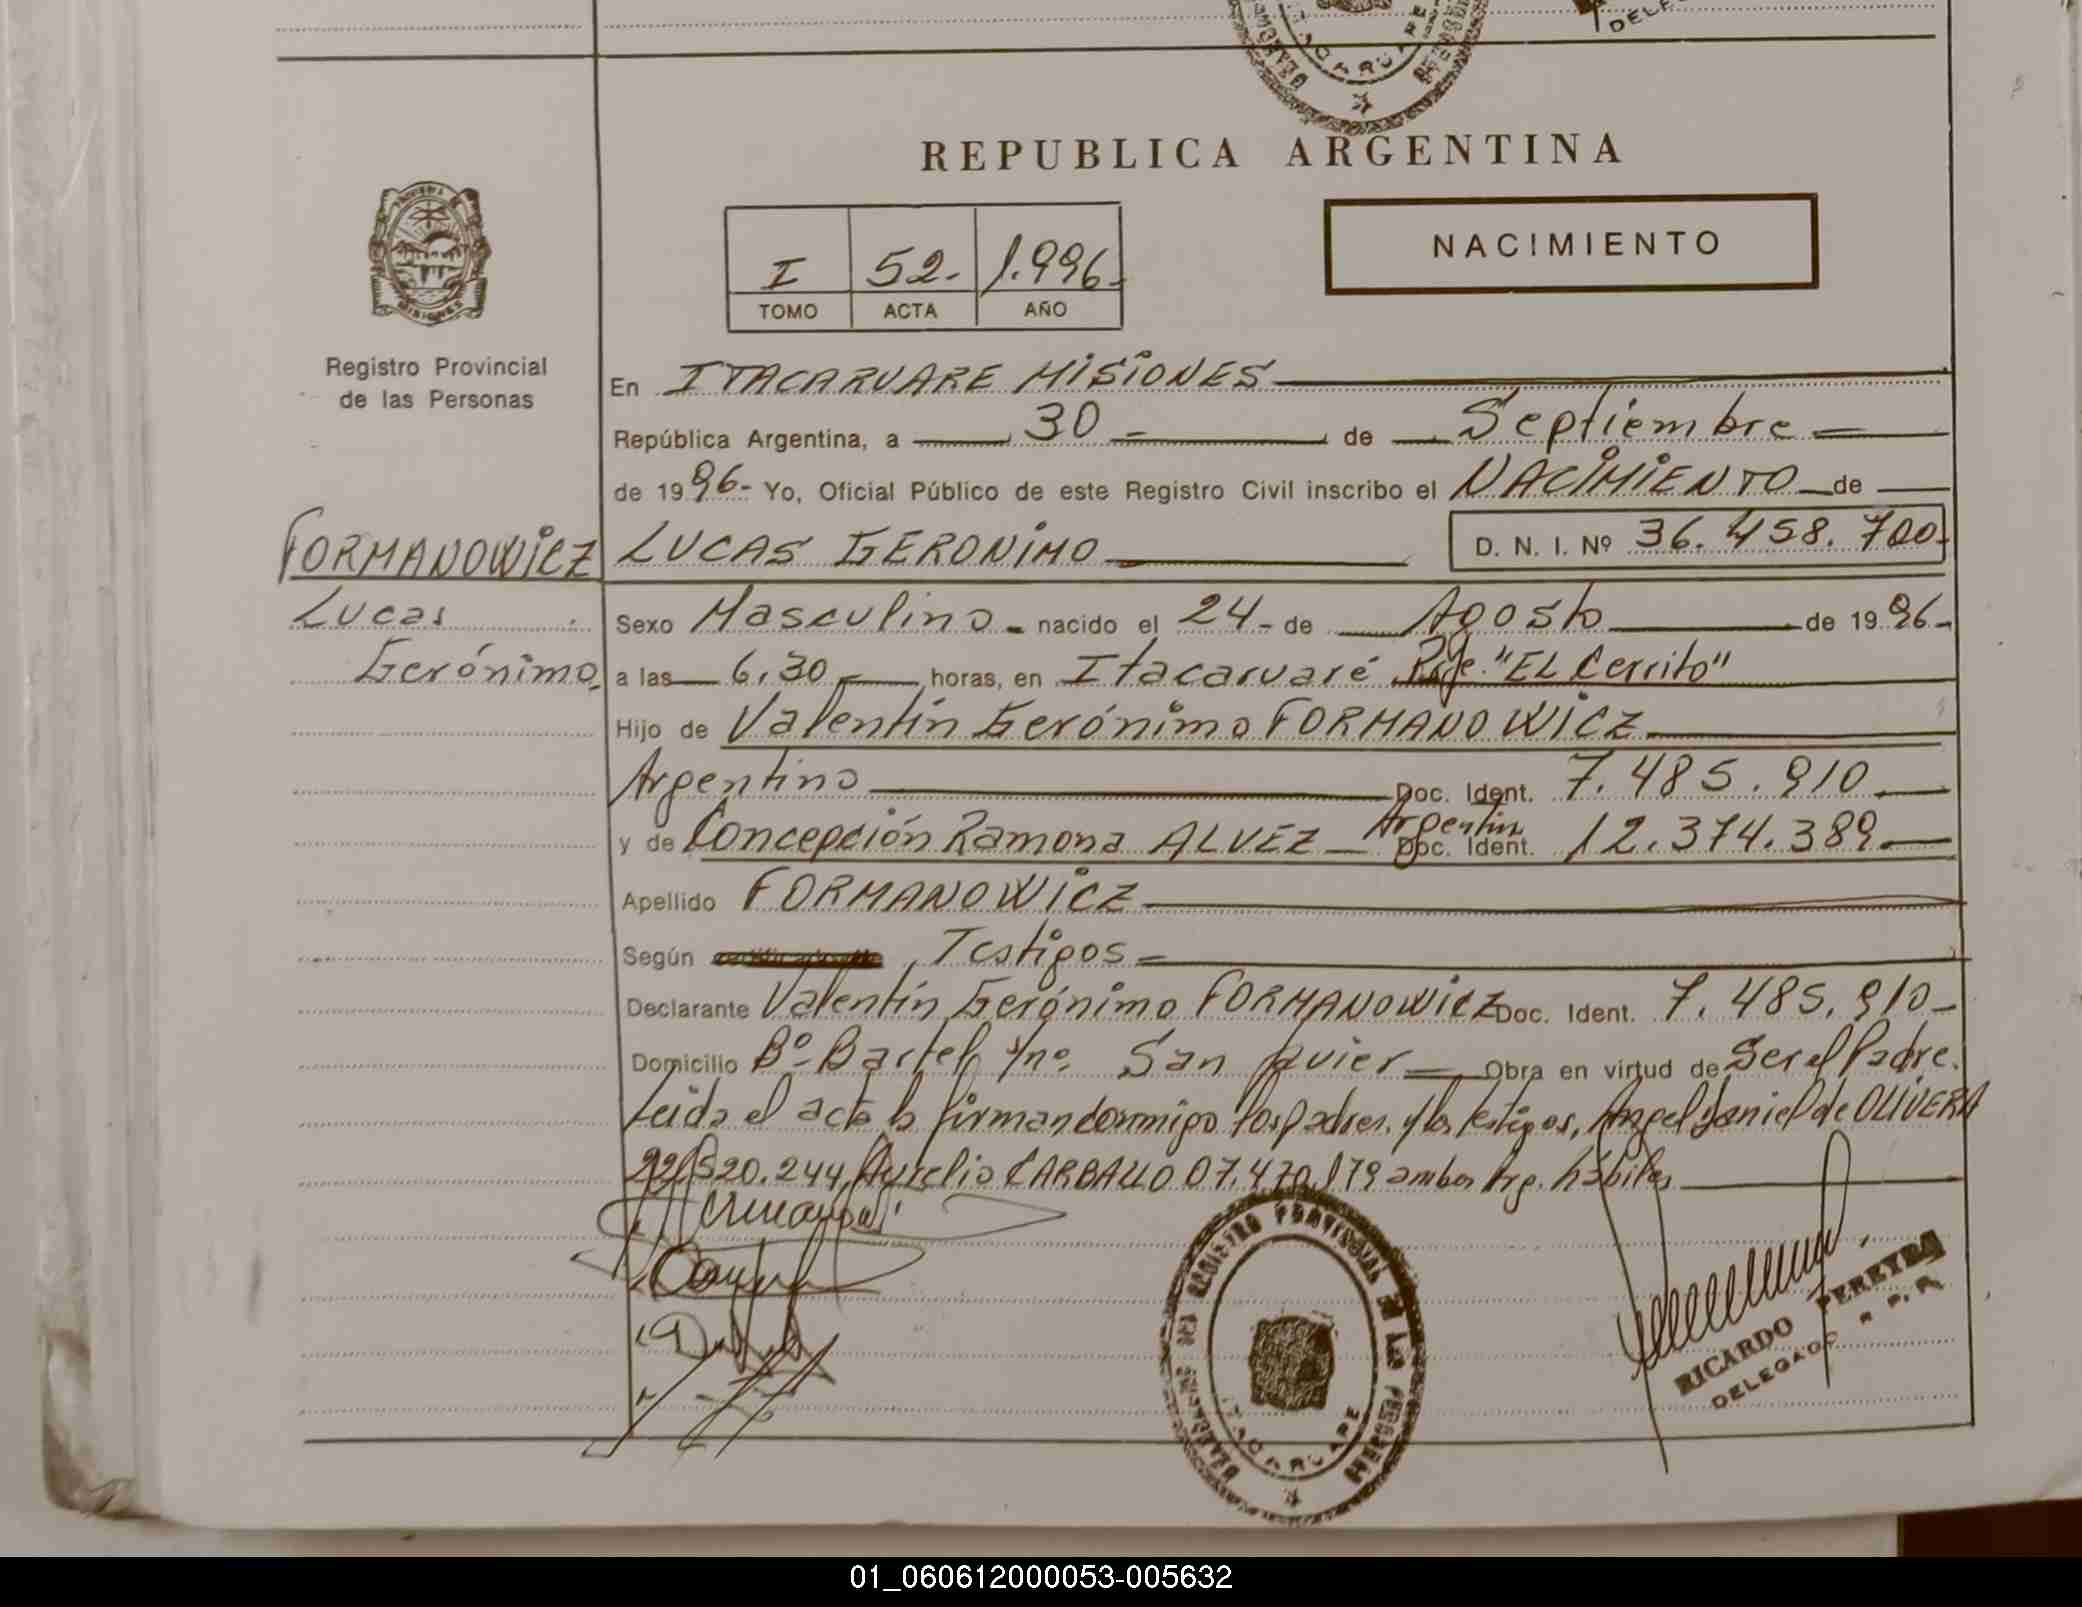 DELE
ITACARUARE
REPUBLICA ARGENTINA
NACIMIENTO
I 52- 1.996-
TOMO ACTA AÑO
MISIONES
Registro Provincial
de las Personas
En ITACARUARE MISIONES
República Argentina, a 30 - de Septiembre
de 1996- Yo, Oficial Público de este Registro Civil inscribo el NACIMIENTO de
FORMANOWICZ LUCAS GERONIMO D. N. I. Nº 36.458.700-
Lucas Sexo Masculino - nacido el 24- de Agosto de 1996-
Gerónimo a las 6,30 horas, en Itacaruaré Pje. "EL Cerrito"
Hijo de Valentín Gerónimo FORMANOWICZ
Argentino Doc. Ident. 7.485.910
y de Concepción Ramona ALVEZ - Argentin Doc. Ident. 12.374.389
Apellido FORMANOWICZ
Según Testigos
Declarante Valentín Gerónimo FORMANOWICZ Doc. Ident. 7.485.910-
Domicilio Bº- Bartel s/nº San Javier Obra en virtud de Ser el Padre.
Leida el acta la firman conmigo los padres y los testigos, Angel Daniel de OLIVERA
22.520.244, Aurelio CARBALLO 07.470.179 ambos Arg. hábiles
REGISTRO PROVINCIAL DE LAS PERSONAS
ITACARUARE
RICARDO PEREYRA
DELEGADO R. P. P.
01_060612000053-005632